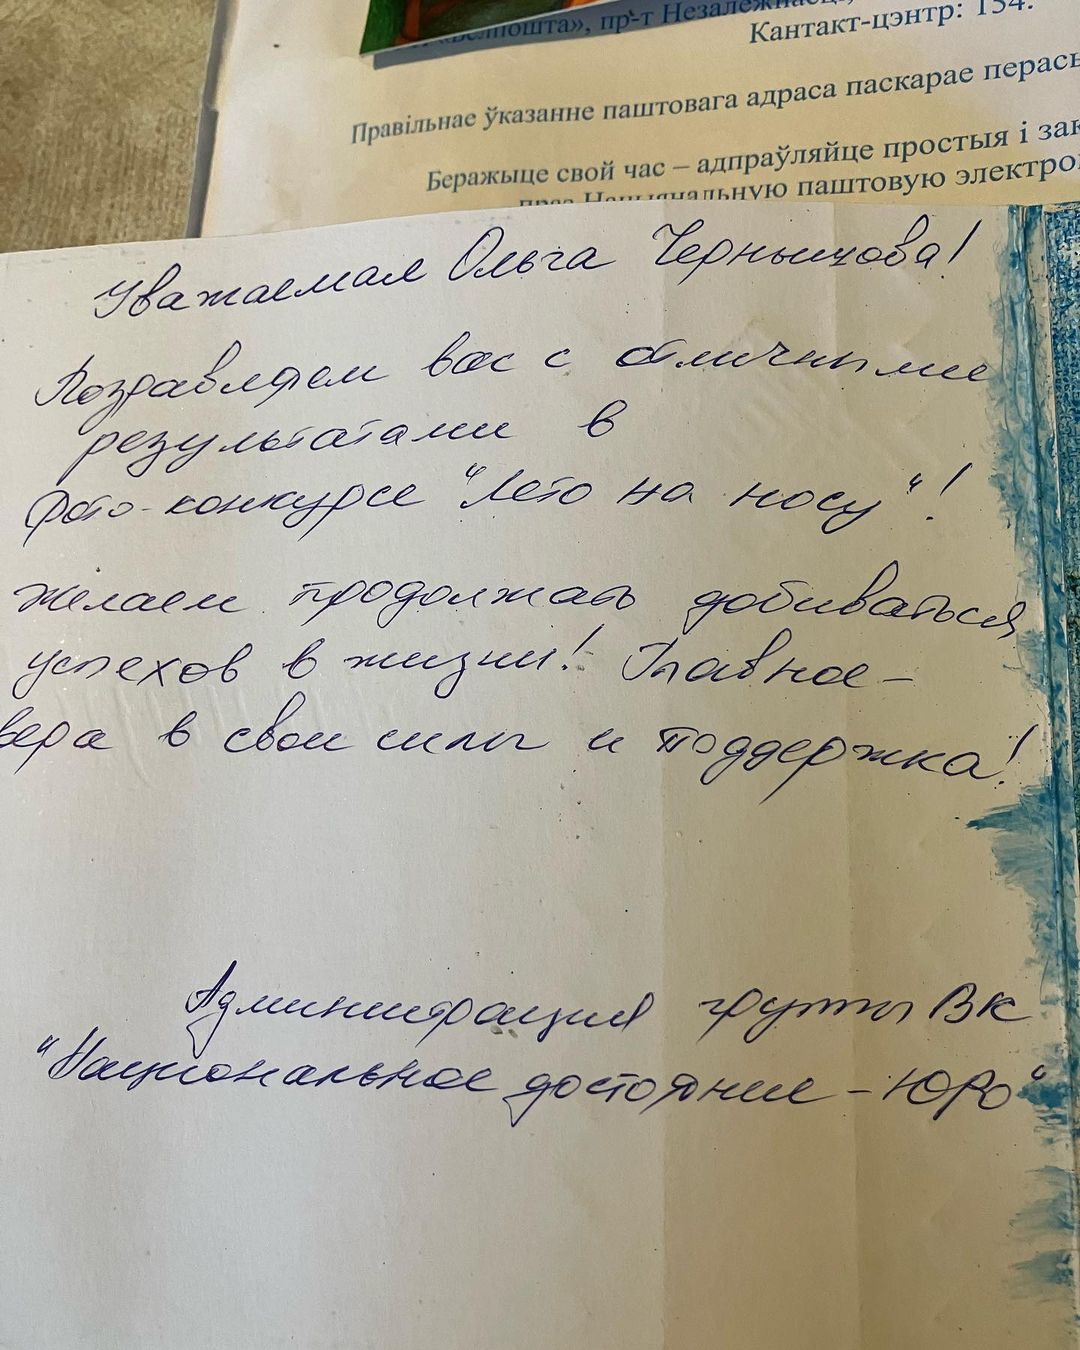 «Белпошта», пр-т Незалежнасці,
Кантакт-цэнтр: 154.
Правільнае ўказанне паштовага адраса паскарае
Беражыце свой час – адпраўляйце простыя і
праз Нацыянальную паштовую
Уважаемая Ольга Чернышова!
Поздравляем вас с отличными
результатами в
фото-конкурсе "Лето на носу"!
Желаем продолжать добиваться
успехов в жизни! Главное –
вера в свои силы и поддержка!
Администрация группы ВК
"Национальное достояние – ЮРО"